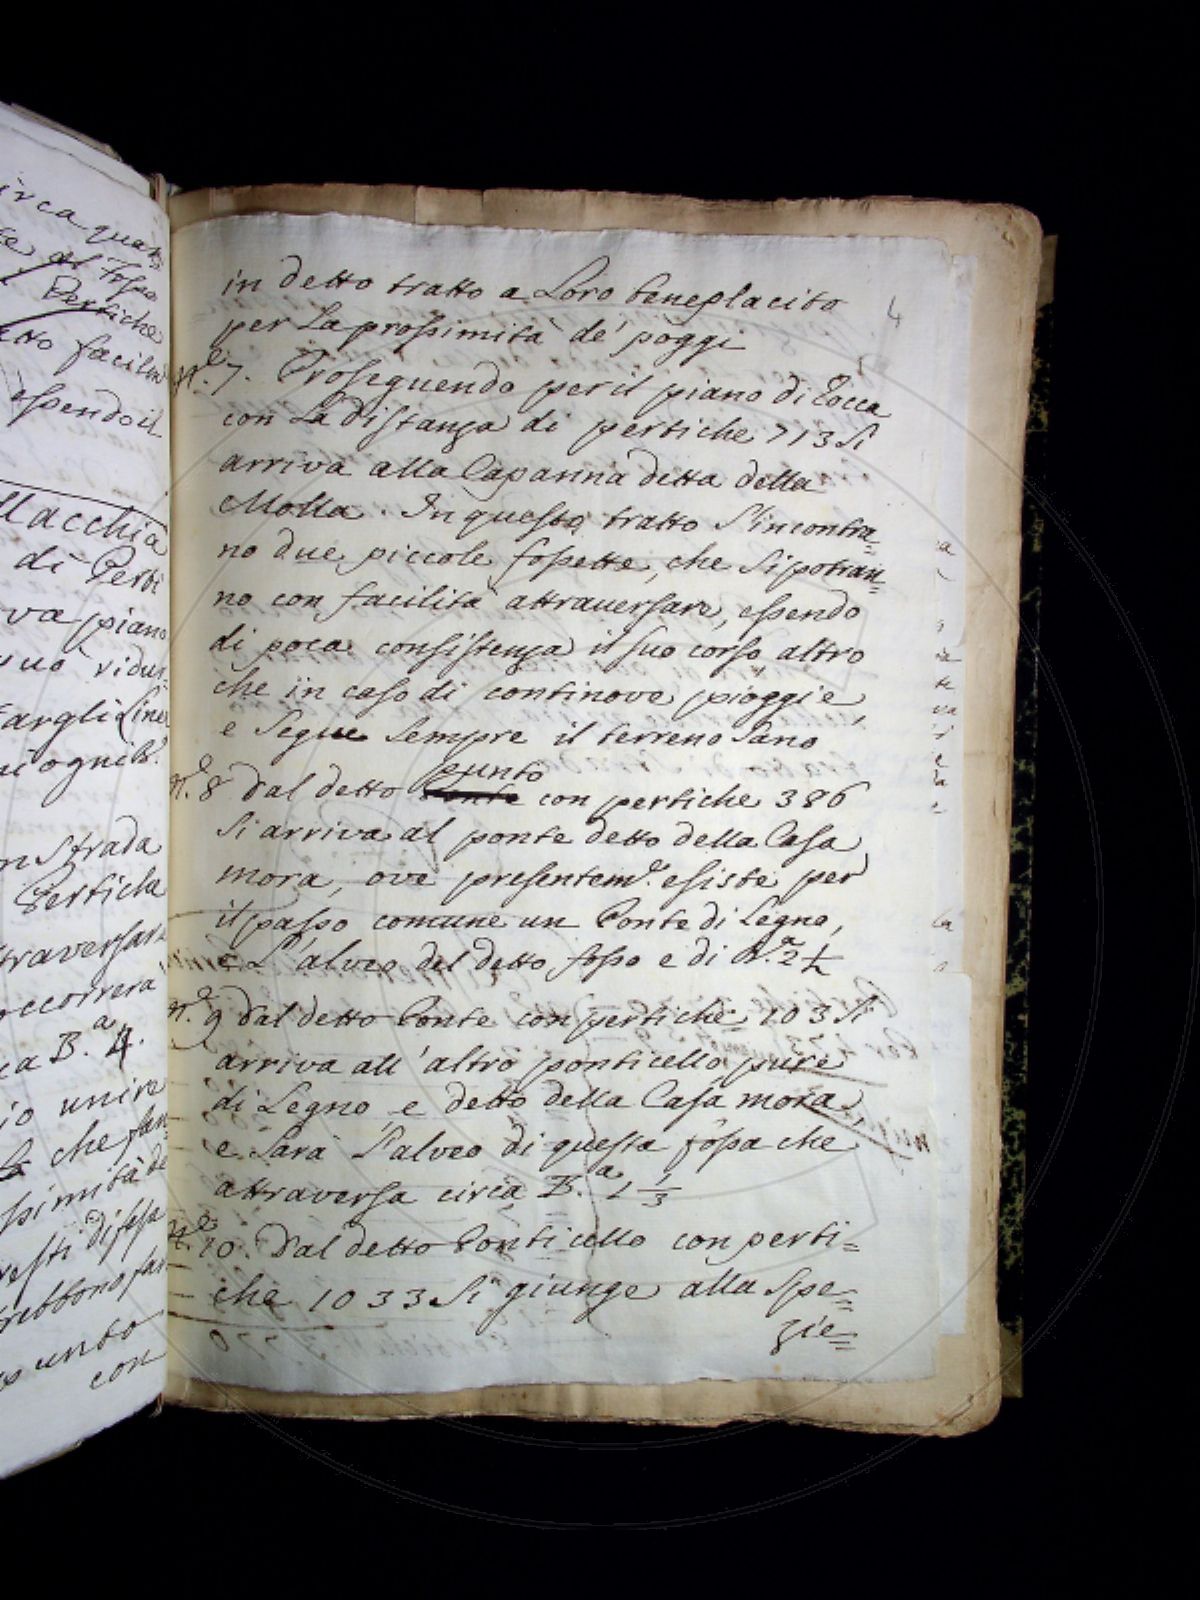 irca quan
te al fosso
Pertiche
etto facilm
essendo il
Macchia
di Perti
va piano
ridur=
fargli Linea
n Strada
Pertiche
traversar
occorrerà
ca B.ª 4.
io unire
che fan=
ssimità de
resti difesa
trebbono far
punto
con
4
in detto tratto a Loro beneplacito
per La prossimità de' poggi
N.º 7. Proseguendo per il piano di Tocca
con La distanza di pertiche 713 si
arriva alla Capanna detta della
Molla. In questo tratto s'incontra=
no due piccole fossette, che si potran=
no con facilità attraversare, essendo
di poca consistenza il suo corso altro
che in caso di continove pioggie,
e segue sempre il terreno sano
N.º 8 Dal detto punto con pertiche 386
si arriva al ponte detto della Casa
mora, ove presentem.e esiste per
il passo comune un Ponte di Legno,
e L'alveo del detto fosso e di B.ª 2 1/2
N.º 9 Dal detto Ponte con pertiche 103 si
arriva all'altro ponticello pure
di Legno e detto della Casa mora,
e sarà l'alveo di questa fossa che
attraversa circa B.ª 1 1/3
N.º 10. Dal detto Ponticello con perti=
che 1033 si giunge alla spe=
zie=